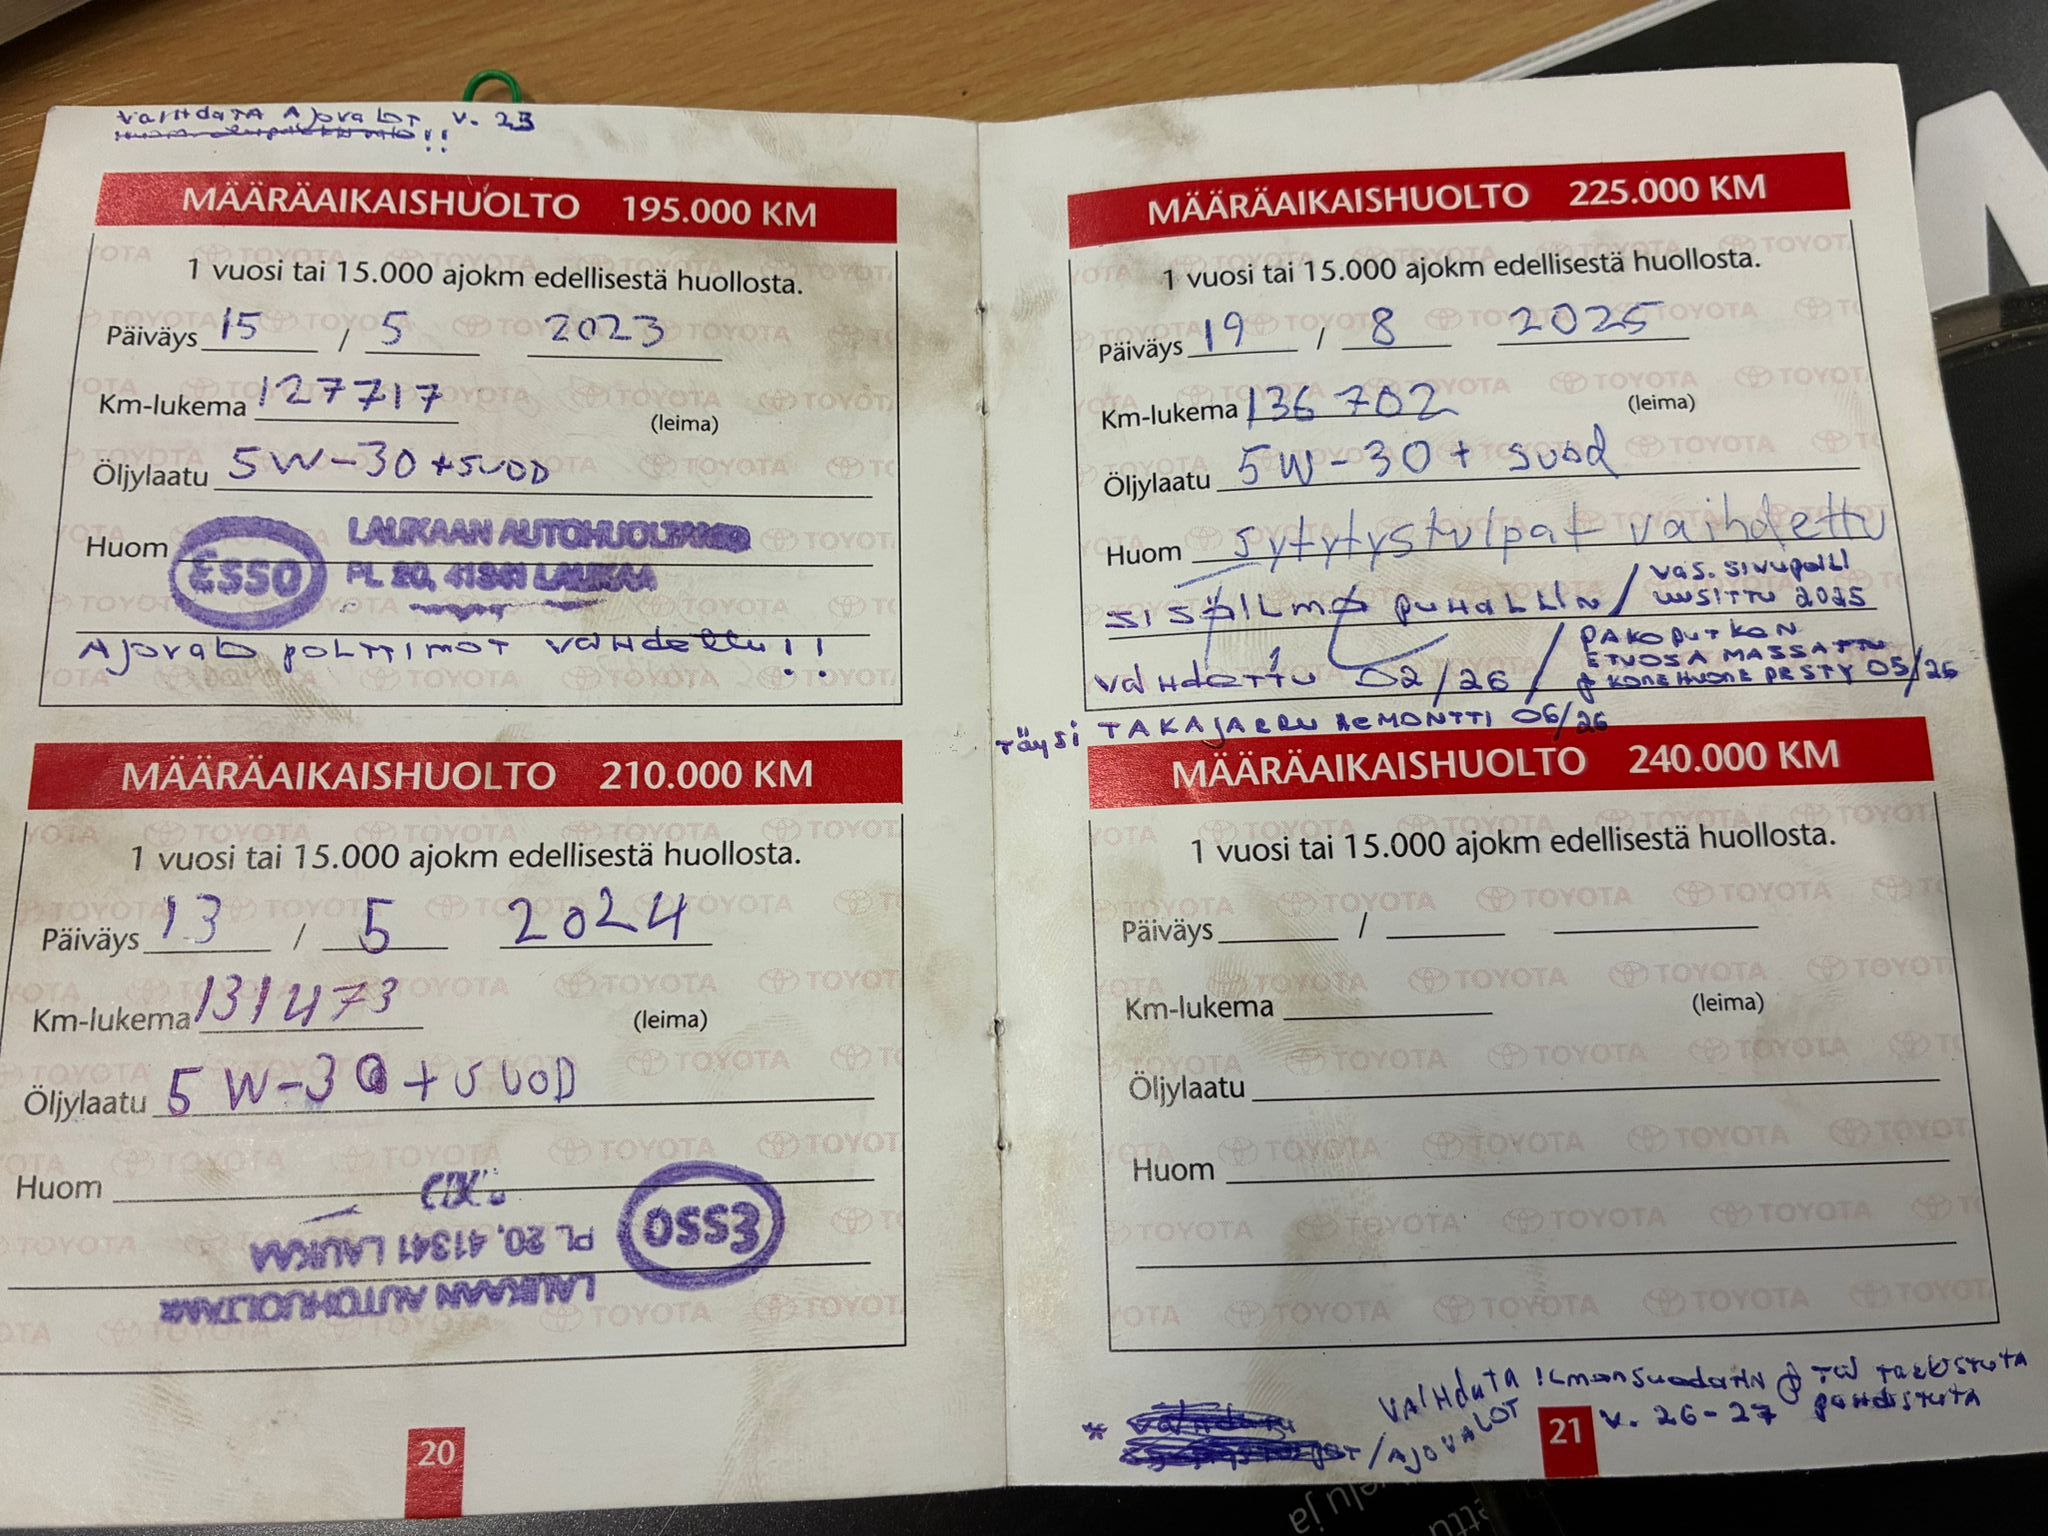 VAIHDATA AJOVALOT v. 23
!!
MÄÄRÄAIKAISHUOLTO 195.000 KM
1 vuosi tai 15.000 ajokm edellisestä huollosta.
Päiväys 15 / 5 2023
Km-lukema 127717 (leima)
Öljylaatu 5W-30 + SUOD
Huom ESSO LAUKAAN AUTOHUOLTAMO
PL 20, 41341 LAUKAA
AJOVALO POLTTIMOT VAIHDETTU!!
MÄÄRÄAIKAISHUOLTO 210.000 KM
1 vuosi tai 15.000 ajokm edellisestä huollosta.
Päiväys 13 / 5 2024
Km-lukema 131473 (leima)
Öljylaatu 5W-30 + SUOD
Huom
ESSO
LAUKAAN AUTOHUOLTAMO
PL 20, 41341 LAUKAA
20
MÄÄRÄAIKAISHUOLTO 225.000 KM
1 vuosi tai 15.000 ajokm edellisestä huollosta.
Päiväys 19 / 8 2025
Km-lukema 136702 (leima)
Öljylaatu 5W-30 + suod
Huom sytytystulpat vaihdettu
SISÄILMA PUHALLIN / VAS. SIVUPEILI UUSITTU 2025
VAIHDETTU 02/26 / PAKOPUTKEN
ETUOSA MASSATTU
& KONEHUONE PESTY 05/26
TÄYSI TAKAJARRU REMONTTI 06/26
MÄÄRÄAIKAISHUOLTO 240.000 KM
1 vuosi tai 15.000 ajokm edellisestä huollosta.
Päiväys /
Km-lukema (leima)
Öljylaatu
Huom
* / AJOVALOT
VAIHDATA ILMANSUODATIN + TAI TARKISTUTA
v. 26-27 PUHDISTUTA
21